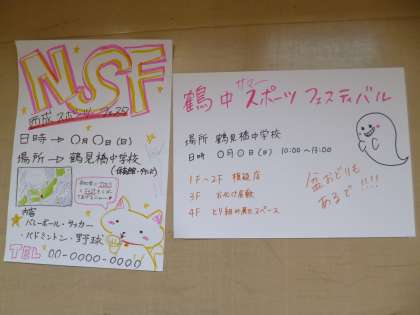 NSF
西成 スポーツ フェスタ
日時 → 〇月〇日(日)
場所 → 鶴見橋中学校
(体育館・グランド)
内容
・バレーボール・サッカー
・バドミントン・野球
TEL 00-0000-0000
鶴中 サマー スポーツ フェスティバル
場所 鶴見橋中学校
日時 〇月〇日(日) 10:00~13:00
1F~2F 模擬店
3F おばけ屋敷
4F とり組み展示スペース
盆おどりも
あるで!!!!